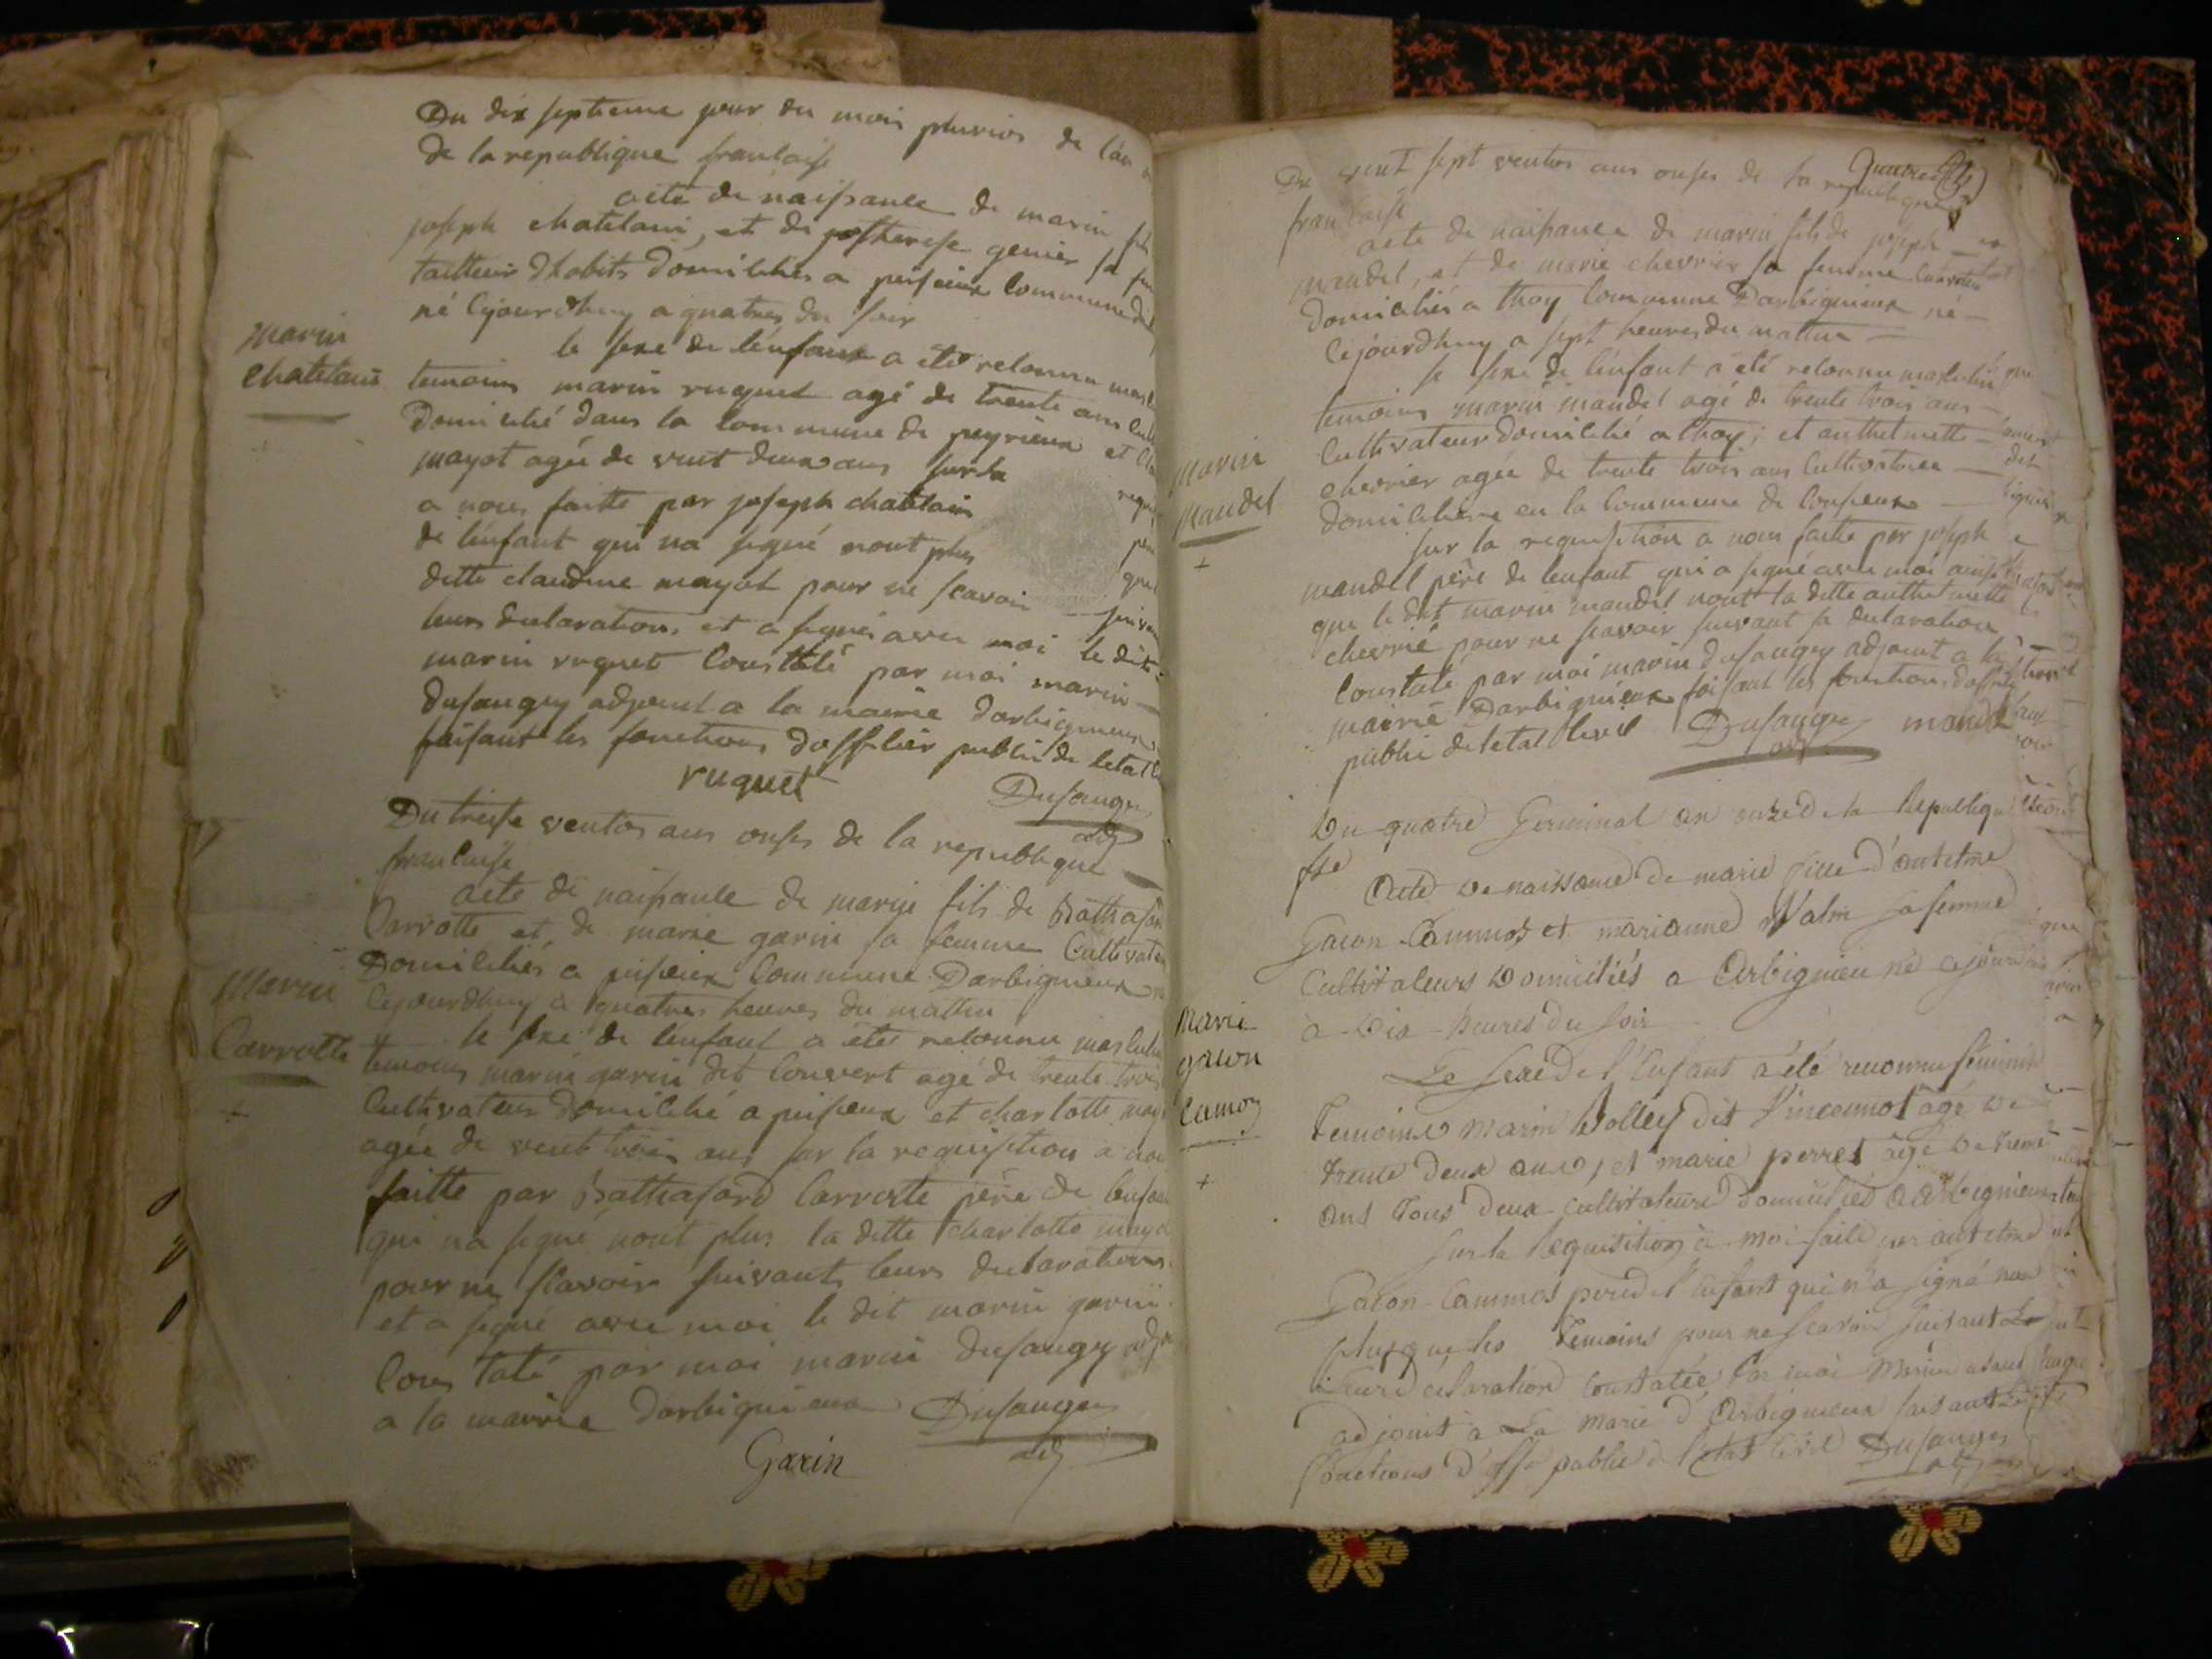 Du dix septieme jour du mois pluvios de l'an
de la republique francaise
acte de naissance de marin fils
joseph chatelain, et de josth therese genier sa
tailleur d'habits domiciliés a peisieux commune
né cejourdhuy a quatres du soir
le sexe de l'enfant a été reconnu
temoins marin ruquet agé de trente ans
domicilié dans la commune de peyrieux et
mayot agée de vint deux ans sur la
a nous faitte par joseph chatelain
de l'enfant qui na signé nont plus
ditte claudine mayot pour ne scavoir
leurs declarations et a signé avec moi le dit
marin ruquet constaté par moi marin
dusaugey adjoint a la mairie darbignieux
faisant les fonctions dofficier public de letat
ruquet
Dusaugey
adj
marin
chatelain
Du treise ventos ans onses de la republique
francaise
acte de naissance de marin fils de Balthasard
Carrotte et de marie garin sa femme cultivateurs
Domiciliés a peisieux commune Darbignieux
cejourdhuy a quatres heures du mattin
le sexe de l'enfant a été reconnu masculin
temoins marin garin dit Convert agé de trente trois
cultivateur domicilié a peisieux et charlotte
agée de vint trois ans sur la requisition a nous
faitte par Balthasard Carrotte père de lenfant
qui na signé nont plus la ditte charlotte
pour ne scavoir suivant leurs declarations
et a signé avec moi le dit marin garin
constaté par moi marin dusaugey
a la mairie darbignieux
Dusaugey
adj
Garin
Marin
Carrotte
+
Du vint sept ventos ans onses de la republique
francaise
acte de naissance de marin fils de joseph
mandel, et de marie chevrier sa femme
domiciliés a thoy commune Darbignieux né
cejourdhuy a sept heures du mattin
le sexe de l'enfant a été reconnu masculin
temoins marin mandel agé de trente trois ans
cultivateur domicilié a thoy; et anthelmette
chevrier agée de trente trois ans cultivatrice
domiciliée en la commune de
sur la requisition a nous faitte par joseph
mandel père de lenfant qui a signé avec moi ainsi
que le dit marin mandel nont la ditte anthelmette
chevrié pour ne scavoir suivant sa declaration
constaté par moi marin dusaugey adjoint a la
mairie Darbignieux faisant les fonctions
public de letat civil
Dusaugey
mandel
marin
mandel
+
Du quatre Germinal an onze de la Republique
fse
Acte de naissance de marie fille d'antelme
Gacon Cammos et marianne sa femme
Cultivateurs Domiciliés a Arbignieu né cejourdhui
à Dix heures du soir
Le sexe de l'Enfant a été reconnu féminin
Temoins marin dit Vincennot agé de
trente deux ans, et marie perret agé de trente
ans tous deux cultivateurs domiciliés a arbignieux
sur la Requisition à moi faite par antelme
Gacon Cammos pere de l'enfant qui n'a signé non
plus que les Temoins pour ne scavoir suivant
leur declaration constatée Par moi Marin
adjoint à La Marie d'Arbignieux faisant
fonctions d'offr public de l'état civil
Dusaugey
Marie
gacon
camoz
+